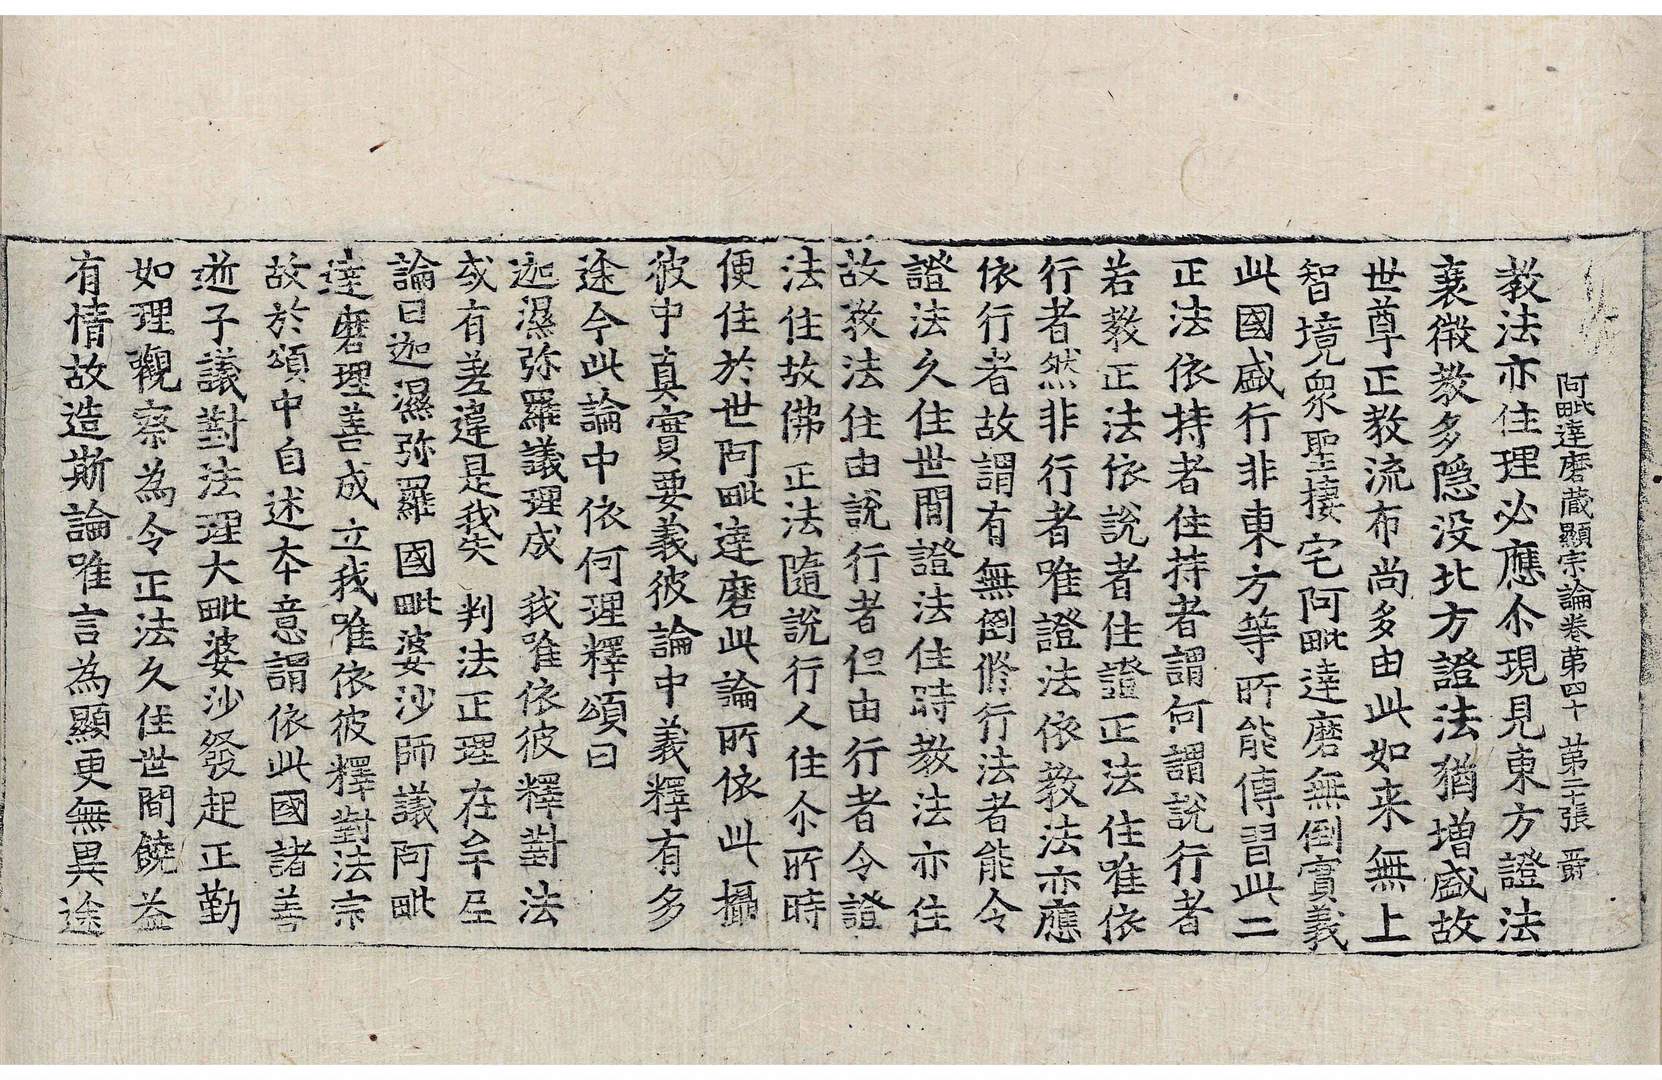 阿毗達磨藏顯宗論卷第四十 第二十張 爵
教法亦住理必應尒現見東方證法
衰微教多隱没北方證法猶增盛故
世尊正教流布尚多由此如来無上
智境衆聖捿宅阿毗達磨無倒實義
此國盛行非東方等所能傳習此二
正法依持者住持者謂何謂說行者
若教正法依說者住證正法住唯依
行者然非行者唯證法依教法亦應
依行者故謂有無倒脩行法者能令
證法久住世間證法住時教法亦住
故教法住由說行者但由行者令證
法住故佛正法隨說行人住尒所時
便住於世阿毗達磨此論所依此攝
彼中真實要義彼論中義釋有多
途今此論中依何理釋頌曰
迦濕弥羅議理成 我唯依彼釋對法
或有差違是我失 判法正理在牟尼
論曰迦濕弥羅國毗婆沙師議阿毗
達磨理善成立我唯依彼釋對法宗
故於頌中自述本意謂依此國諸善
逝子議對法理大毗婆沙發起正勤
如理觀察為令正法久住世間饒益
有情故造斯論唯言為顯更無異途